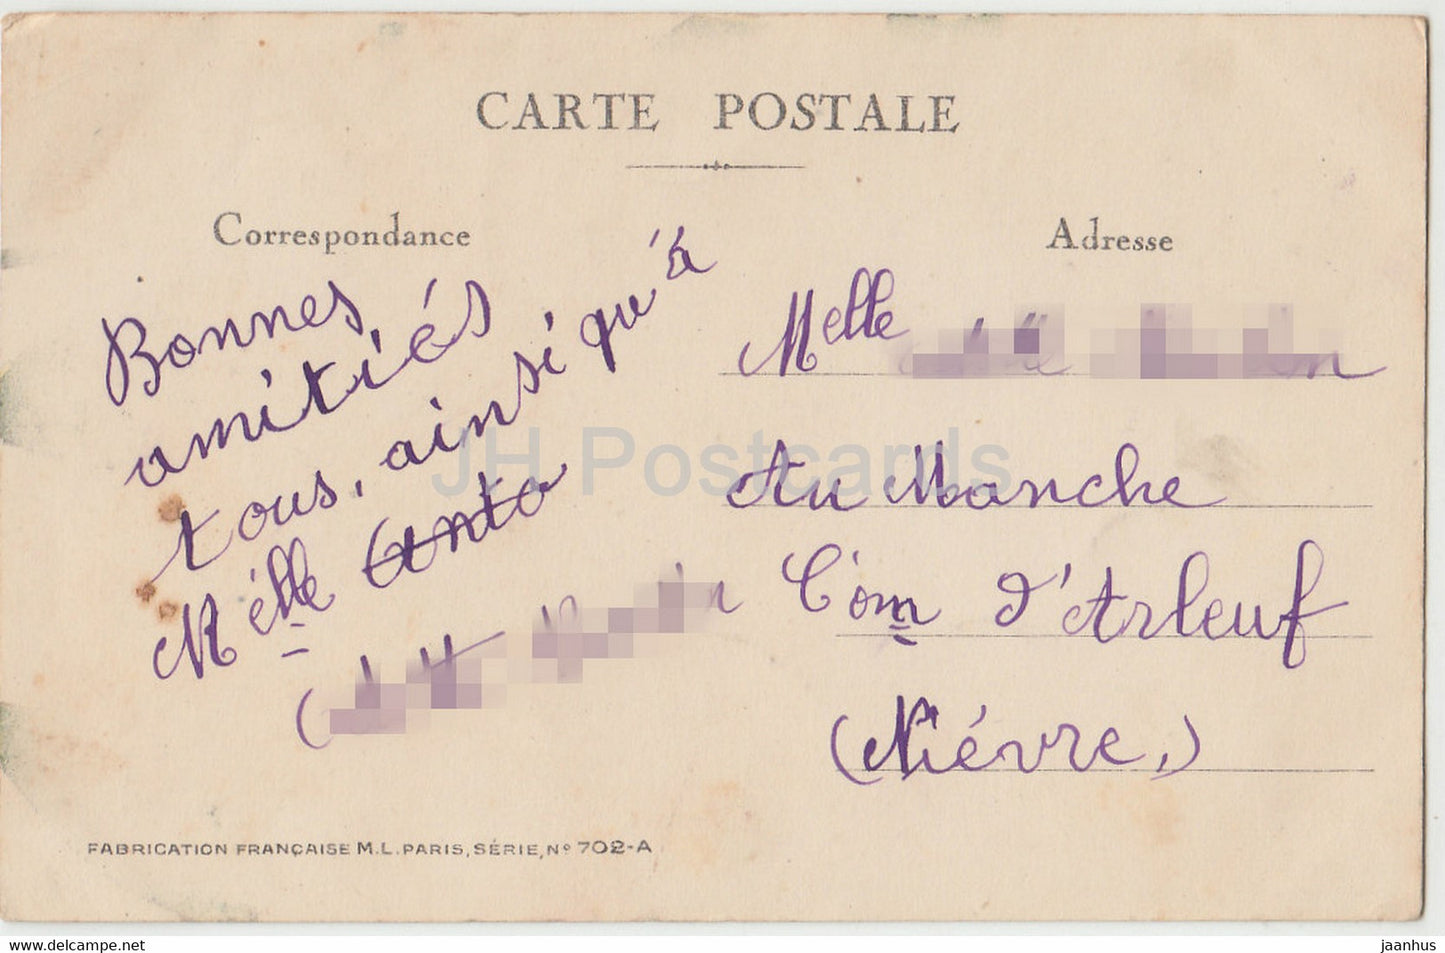 CARTE POSTALE
Correspondance
Bonnes
amitiés
tous, ainsi qu'à
Melle
Adresse
Melle
Au Manche
Com d'Arleuf
(Nièvre,)
FABRICATION FRANÇAISE M.L. PARIS, SÉRIE, Nº 702-A
JH Postcards
www.delcampe.net
jaanhus